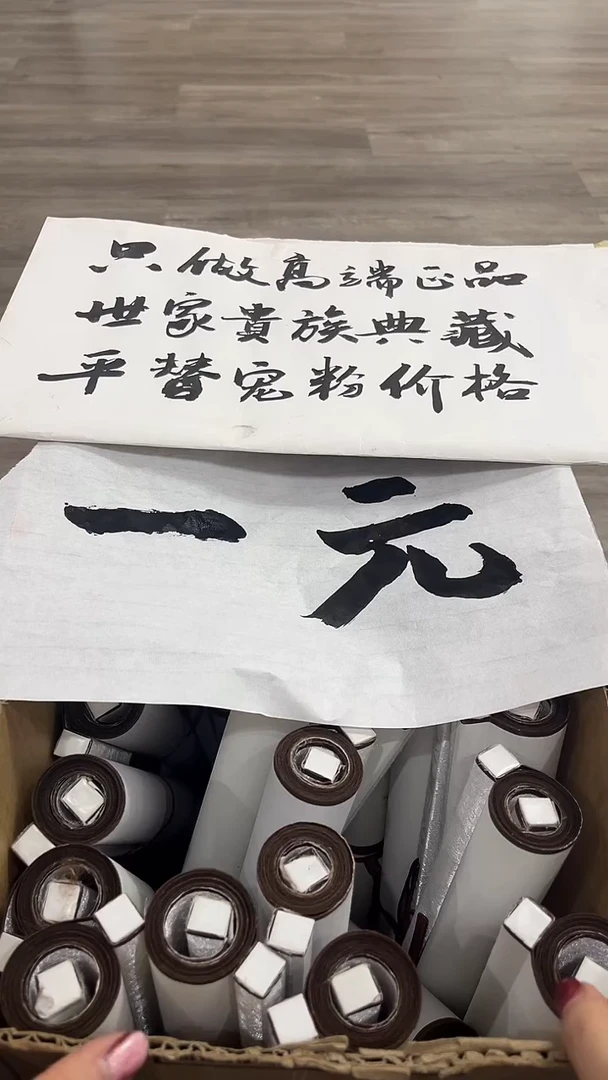 只做高端正品
世家貴族典藏
平替宠粉价格
一元